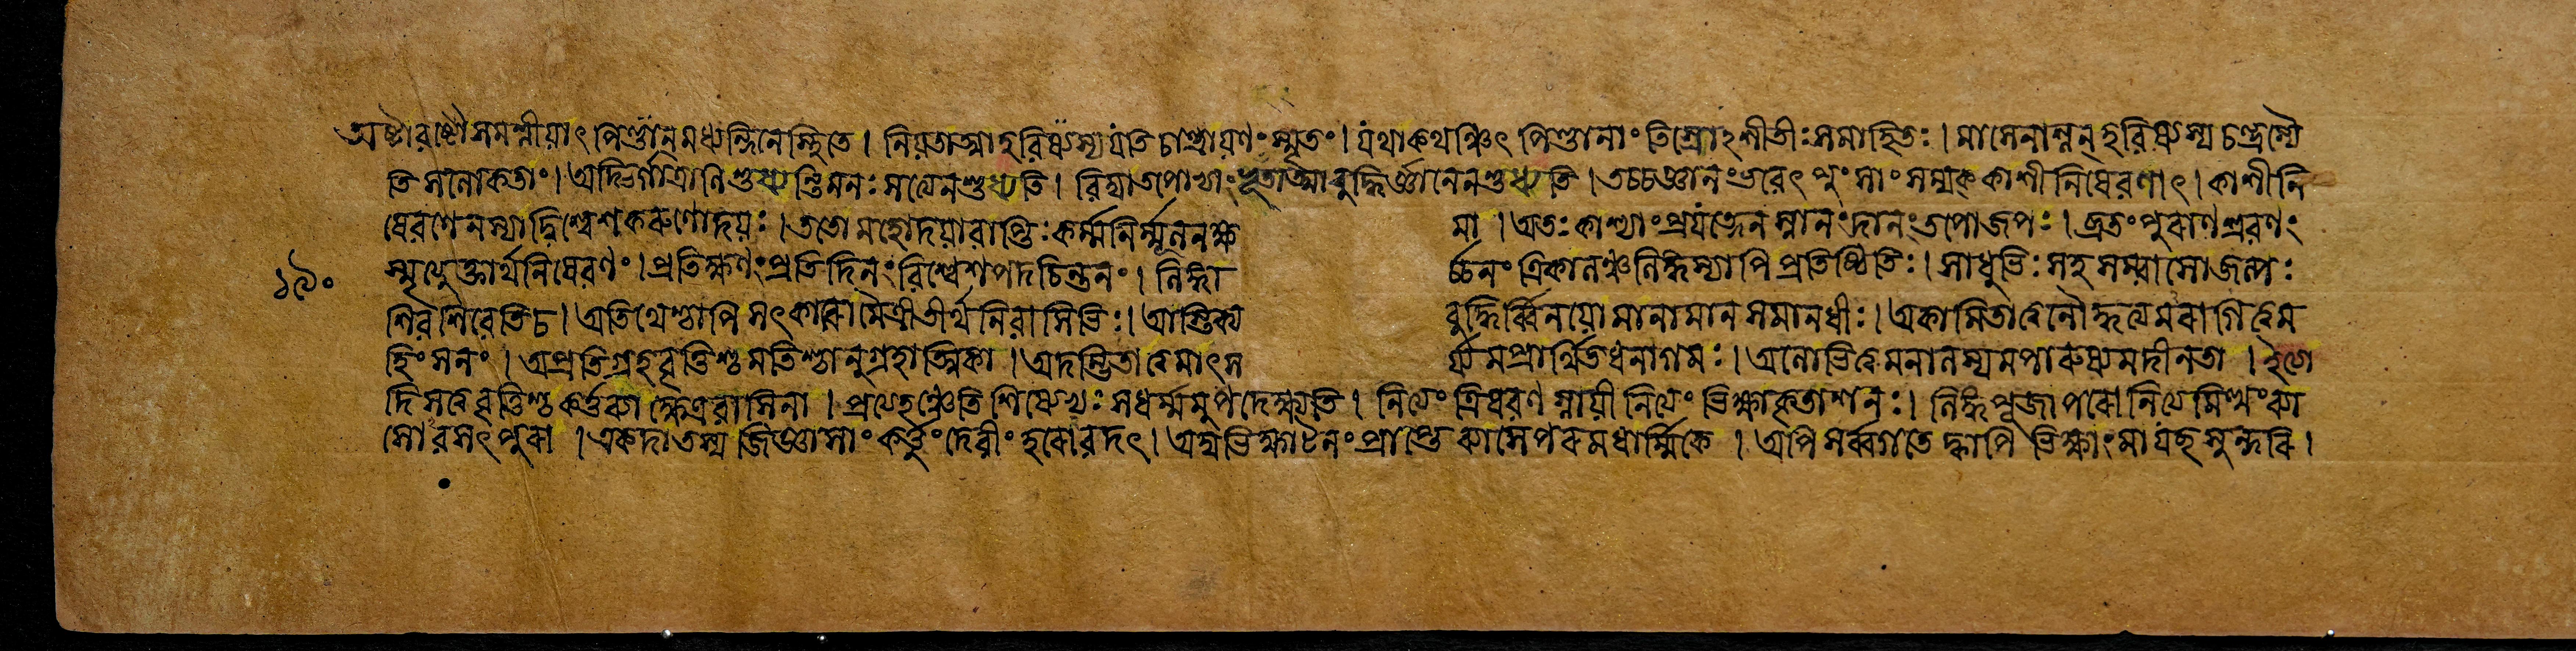 অষ্টাবষ্টৌ সমশ্নীয়াৎ পিণ্ডান্ মধ্যন্দিনে স্থিতে । নিয়তাত্মা হবিষ্যস্য যতি চান্দ্রায়ণং স্মৃতং । যথাকথঞ্চিৎ পিণ্ডানাং তিস্রোঽশীতীঃ সমাহিতঃ । মাসেনাশ্নন্ হবিষ্যস্য চন্দ্রস্যৈ
তি সলোকতাং । অদ্ভির্গাত্রাণি শুধ্যন্তি মনঃ সত্যেন শুধ্যতি । বিদ্যাতপোভ্যাং ভূতাত্মা বুদ্ধির্জ্ঞানেন শুধ্যতি । তচ্চ জ্ঞানং ভবেৎ পুংসাং সম্যক্ কাশীনিষেবণাৎ । কাশীনি
ষেবণেন স্যাদ্বিশ্বেশকরুণোদয়ঃ । ততো মহোদয়াবাপ্তিঃ কর্ম্মনির্ম্মূলনক্ষ মা । অতঃ কাশ্যাং প্রযত্নেন স্নানং দানং তপো জপঃ । ব্রতং পুরাণশ্রবণং
১৯০ স্মৃত্যুক্তাধ্বনিষেবণং । প্রতিক্ষণং প্রতিদিনং বিশ্বেশপদচিন্তনং । লিঙ্গা র্চ্চনং ত্রিকালঞ্চ লিঙ্গস্যাপি প্রতিষ্ঠিতিঃ । সাধুভিঃ সহ সম্বাসো জল্পঃ
শিব শিবেতি চ । অতিথেশ্চাপি সৎকারো মৈত্রী তীর্থনিবাসিভিঃ । আস্তিক্য বুদ্ধির্ব্বিনয়ো মানামানসমানধীঃ । অকামিতা ত্বনৌদ্ধত্যমরাগিত্বম
হিংসনং । অপ্রতিগ্রহবৃত্তিশ্চ মতিশ্চানুগ্রহাত্মিকা । অদম্ভিতা ত্বমাৎস র্য্যমপ্রার্থিতধনাগমঃ । অলোভিত্বমনালস্যমপারুষ্যমদীনতা । ইত্যা
দি সদ্বৃত্তিশ্চ কর্ত্তব্যা ক্ষেত্রবাসিনা । প্রত্যহঞ্চেতি শিষ্যেভ্যঃ স ধর্ম্মমুপদেক্ষ্যতি । নিত্যং ত্রিষবণস্নায়ী নিত্যং ভিক্ষাকৃতাশনঃ । লিঙ্গপূজাপরো নিত্যমিত্থং ব্যা
সোবসৎ পুরা । একদা তস্য জিজ্ঞাসাং কর্ত্তুং দেবীং হরোবদৎ । অদ্য ভিক্ষাটনং প্রাপ্তে ব্যাসে পরমধার্ম্মিকে । অপি সর্ব্বগতে ক্বাপি ভিক্ষাং মা যচ্ছ সুন্দরি ।